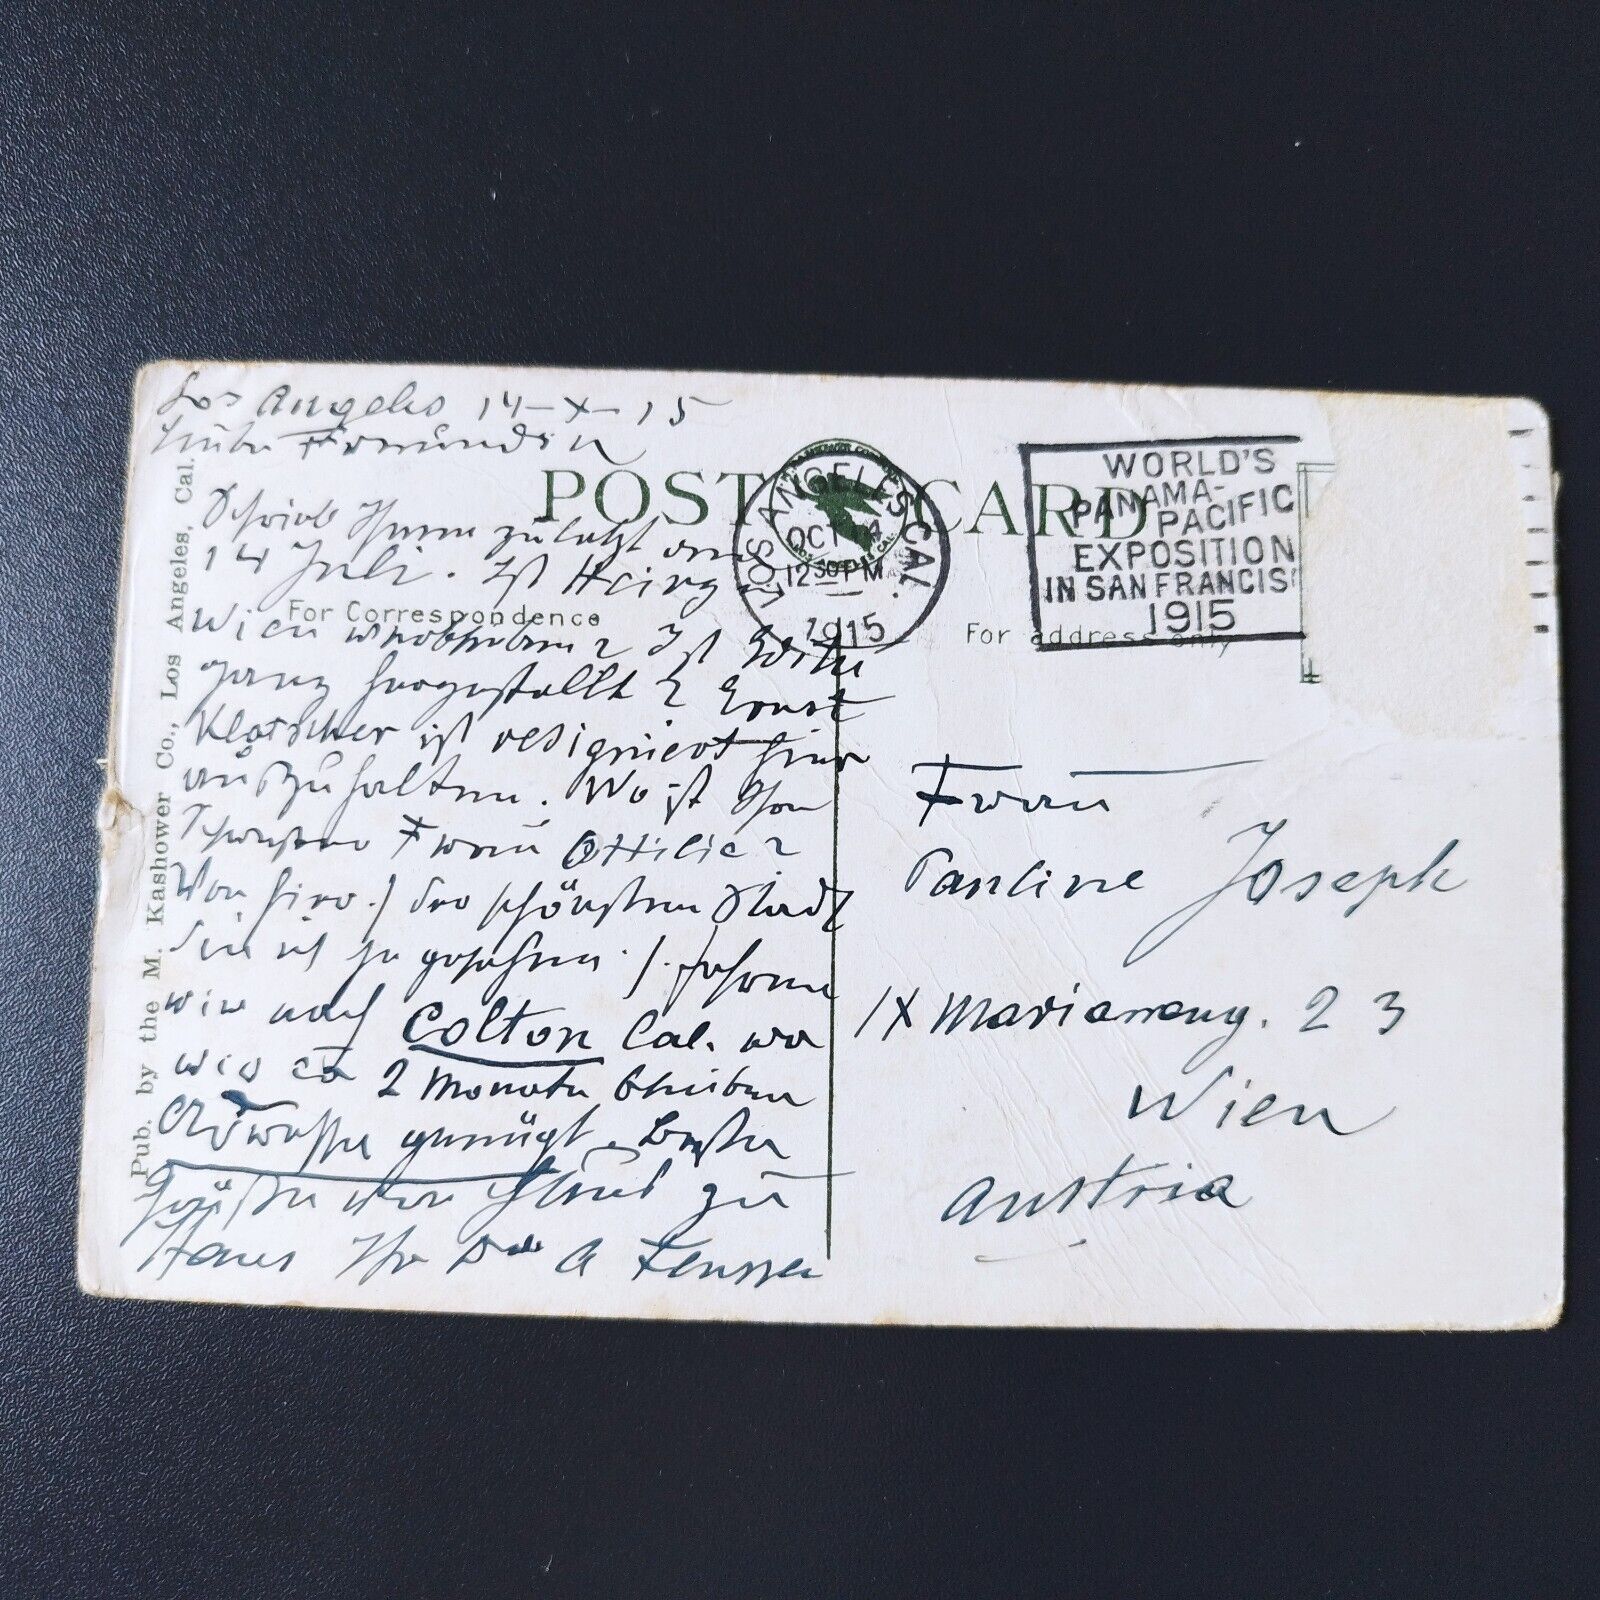 Los Angeles 14-X-15
Liebe Freundin
Schrieb Ihnen zuletzt am
14 Juli. Ist Heinz in
Wien
ganz hergestellt? Ernst
Klatscher ist resigniert hier
auszuhalten. Wo ist Ihre
Schwester Frau Ottilie?
Von hier /der schönsten Stadt
die ich je gesehen./ fahren
wir nach Colton Cal. wo
wir ca 2 Monate bleiben
Adresse genügt. Beste
Grüße von Haus zu
Haus Ihr
POST CARD
For Correspondence
For address only
Pub. by the M. Kashower Co., Los Angeles, Cal.
LOS ANGELES, CAL.
OCT 14
12 30 PM
1915
WORLD'S
PANAMA-
PACIFIC
EXPOSITION
IN SAN FRANCIS
1915
Frau
Pauline Joseph
IX Marianneng. 23
Wien
Austria